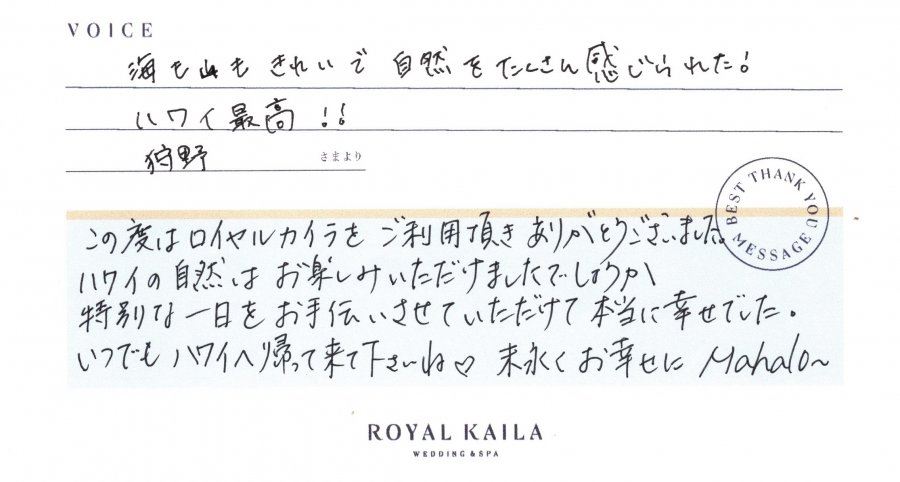 VOICE
海も山もきれいで 自然をたくさん感じられた!
ハワイ最高 !!
狩野 さまより
BEST THANK YOU MESSAGE
この度はロイヤルカイラを ご利用頂き ありがとうございました。
ハワイの自然は お楽しみいただけましたでしょうか
特別な一日を お手伝いさせていただけて 本当に幸せでした。
いつでも ハワイへ帰って来て下さいね♡ 末永くお幸せに Mahalo~
ROYAL KAILA
WEDDING & SPA